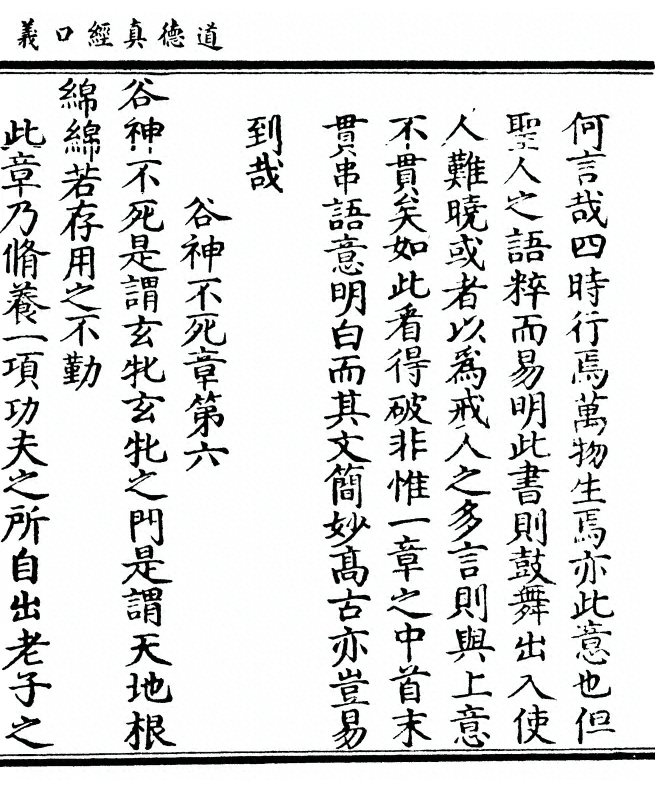 道德真經口義
何言哉四時行焉萬物生焉亦此意也但
聖人之語粹而易明此書則鼓舞出入使
人難曉或者以爲戒人之多言則與上意
不貫矣如此看得破非惟一章之中首末
貫串語意明白而其文簡妙高古亦豈易
到哉
谷神不死章第六
谷神不死是謂玄牝玄牝之門是謂天地根
綿綿若存用之不勤
此章乃脩養一項功夫之所自出老子之